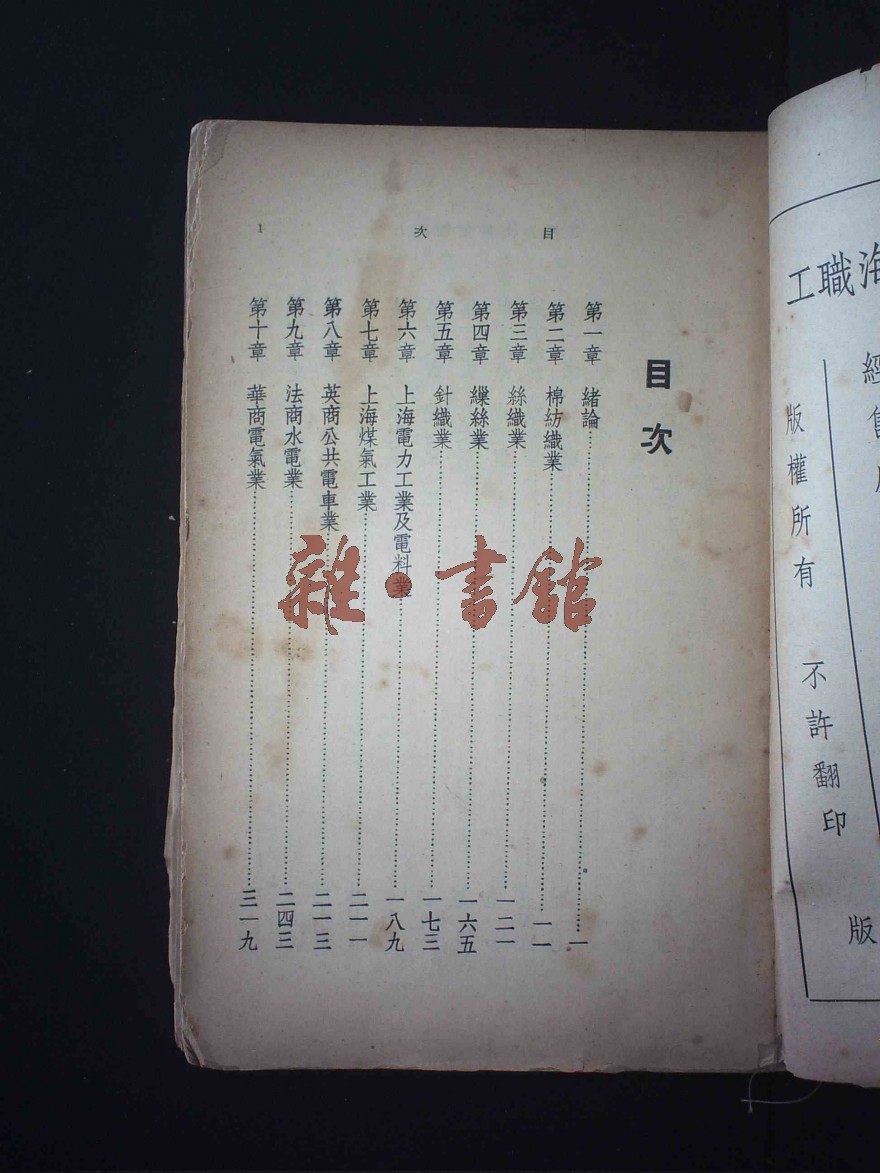 目　次　1
目次
第一章　緒論……一
第二章　棉紡織業……一一
第三章　絲織業……一二一
第四章　繅絲業……一六五
第五章　針織業……一七三
第六章　上海電力工業及電料業……一八九
第七章　上海煤氣工業……二一一
第八章　英商公共電車業……二一三
第九章　法商水電業……二四三
第十章　華商電氣業……三一九
雜·書館
海職工
經售
版權所有　不許翻印
版